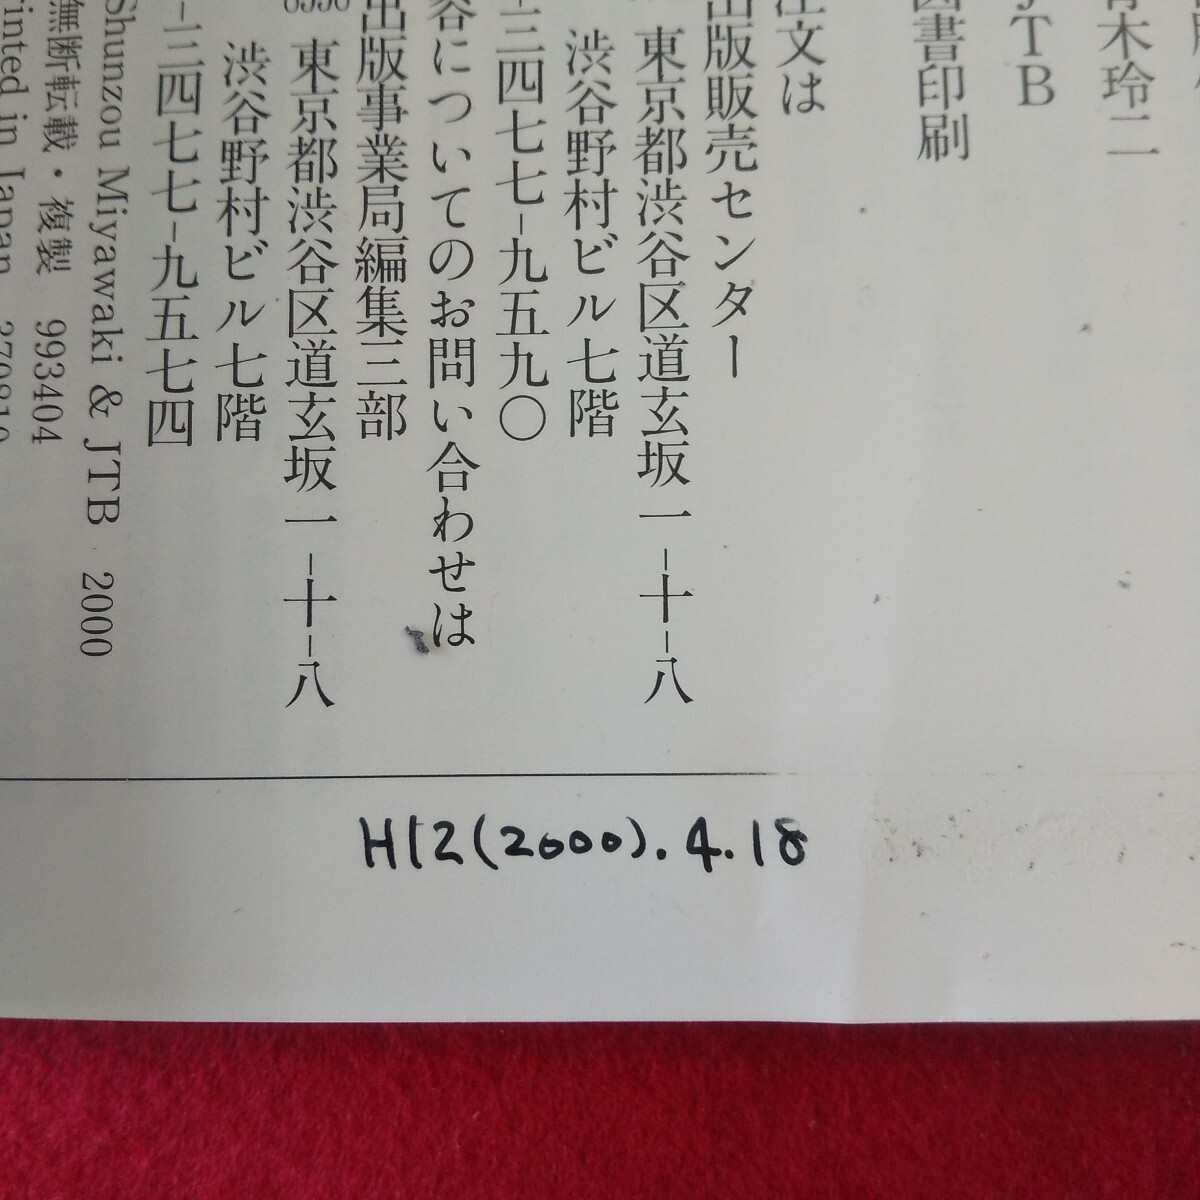 青木玲二
JTB
図書印刷
注文は
出版販売センター
東京都渋谷区道玄坂一-十-八
渋谷野村ビル七階
-三四七七-九五九〇
容についてのお問い合わせは
出版事業局編集三部
東京都渋谷区道玄坂一-十-八
渋谷野村ビル七階
-三四七七-九五七四
Shunzou Miyawaki & JTB 2000
無断転載・複製 993404
rinted in Japan 370810
H12(2000).4.18